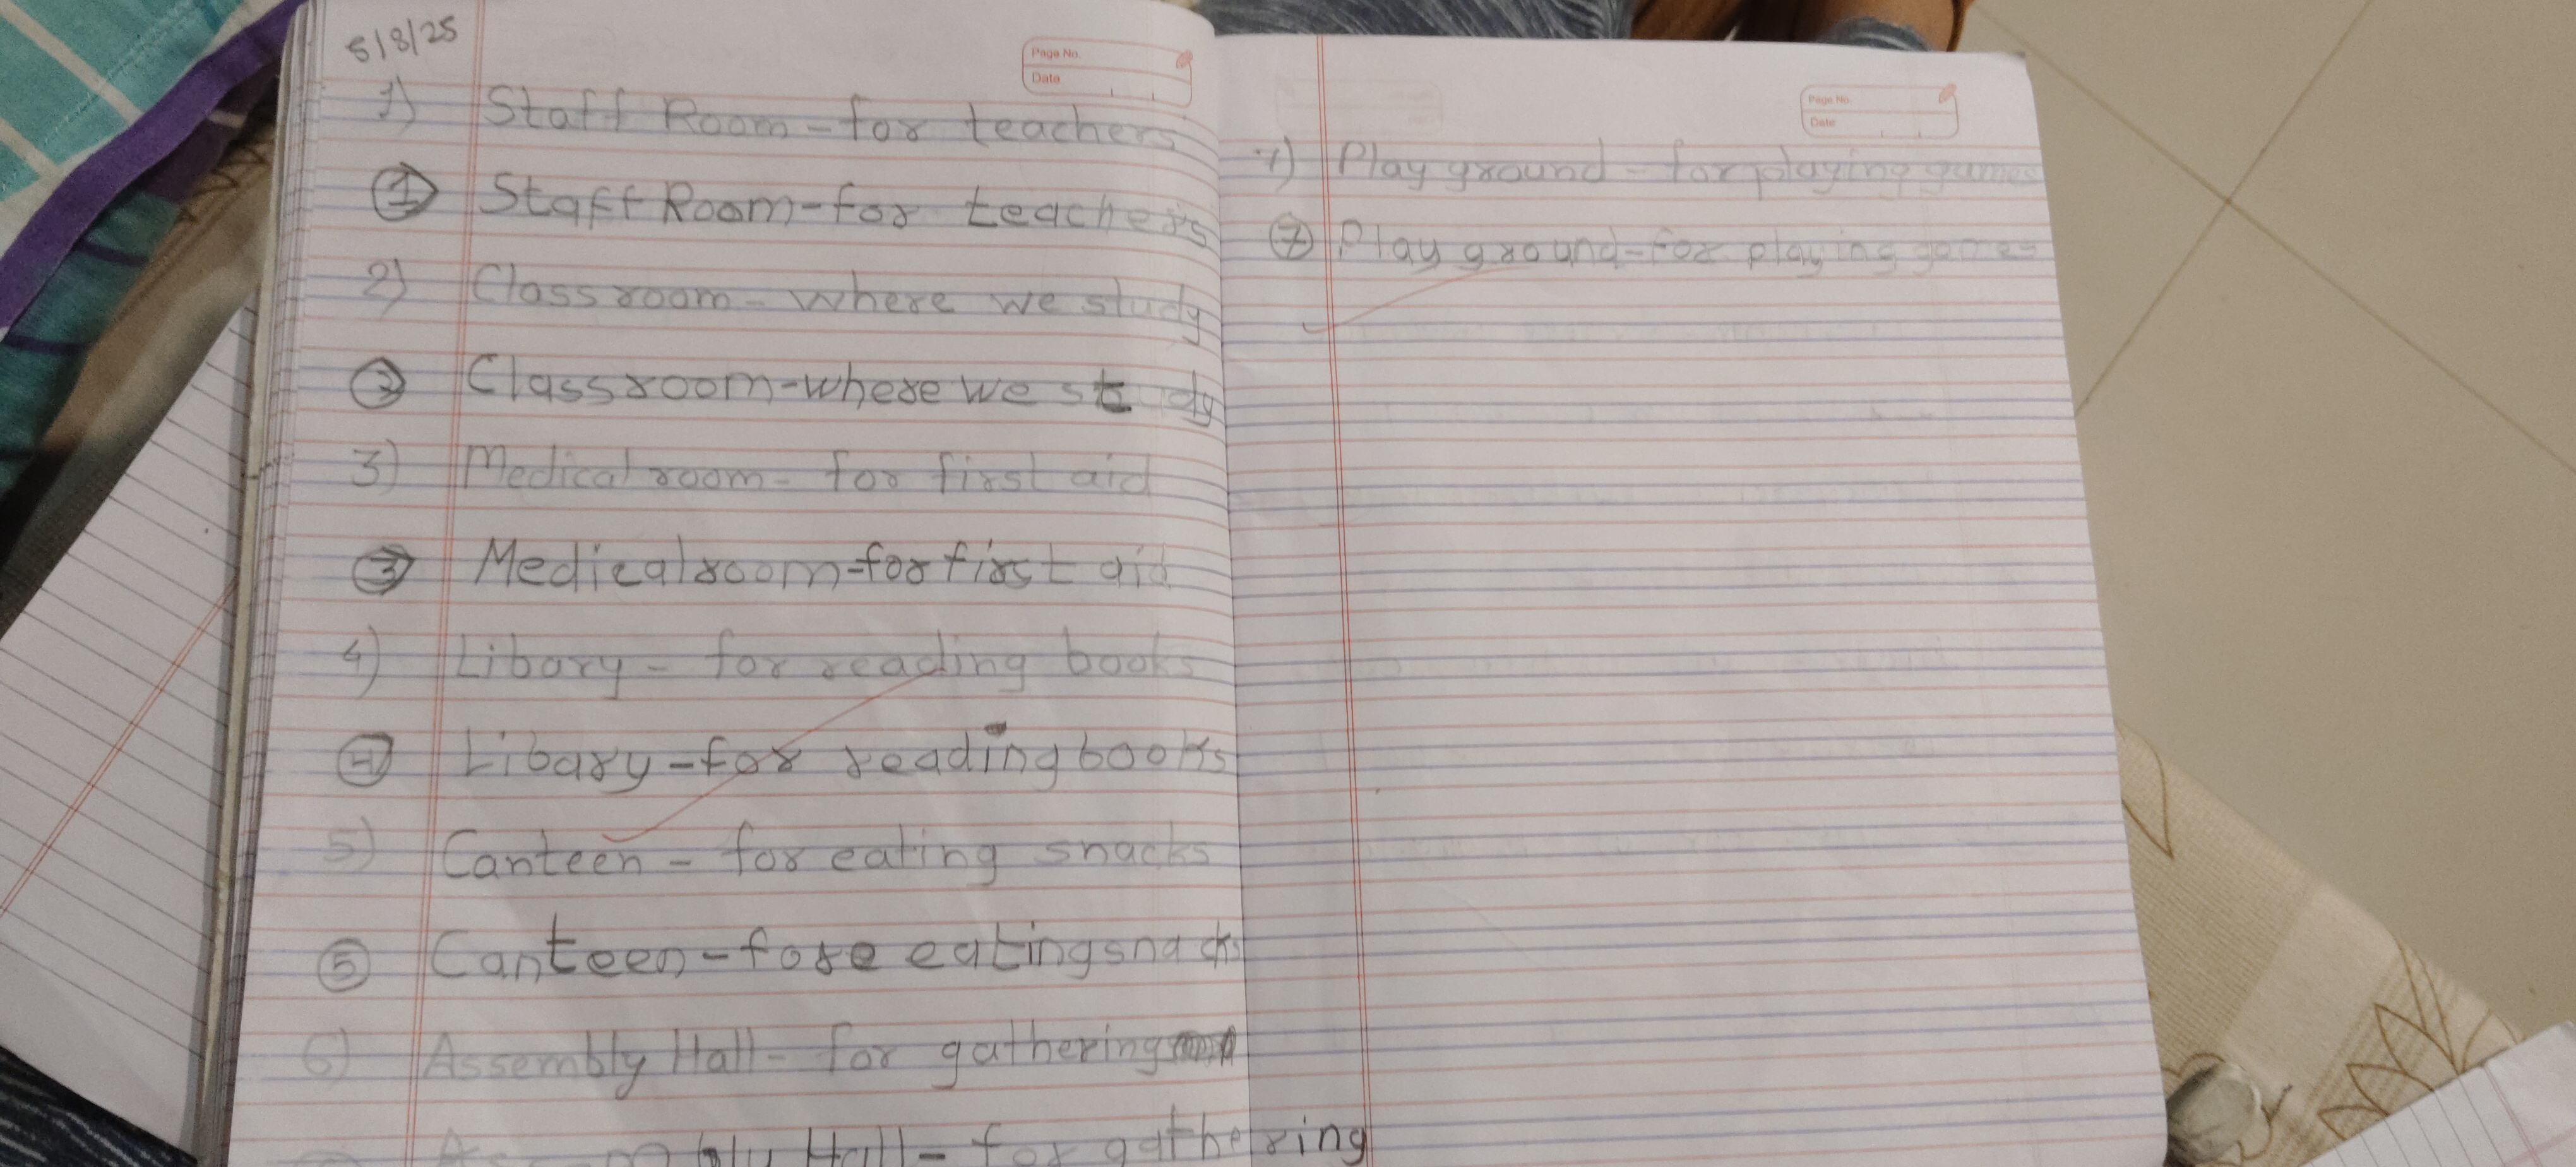 5/8/25
Page No.
Date
1) Staff Room - for teachers
① Staff Room - for teachers
2) Classroom - where we study
② Classroom - where we st dy
3) Medical room - for first aid
③ Medical room - for first aid
4) Libary - for reading books
④ Libary - for reading books
5) Canteen - for eating snacks
⑤ Canteen - fore eating snacks
6) Assembly Hall - for gathering
Assembly Hall - for gathering
Page No.
Date
7) Play ground - for playing games
⑦ Play ground - for playing games